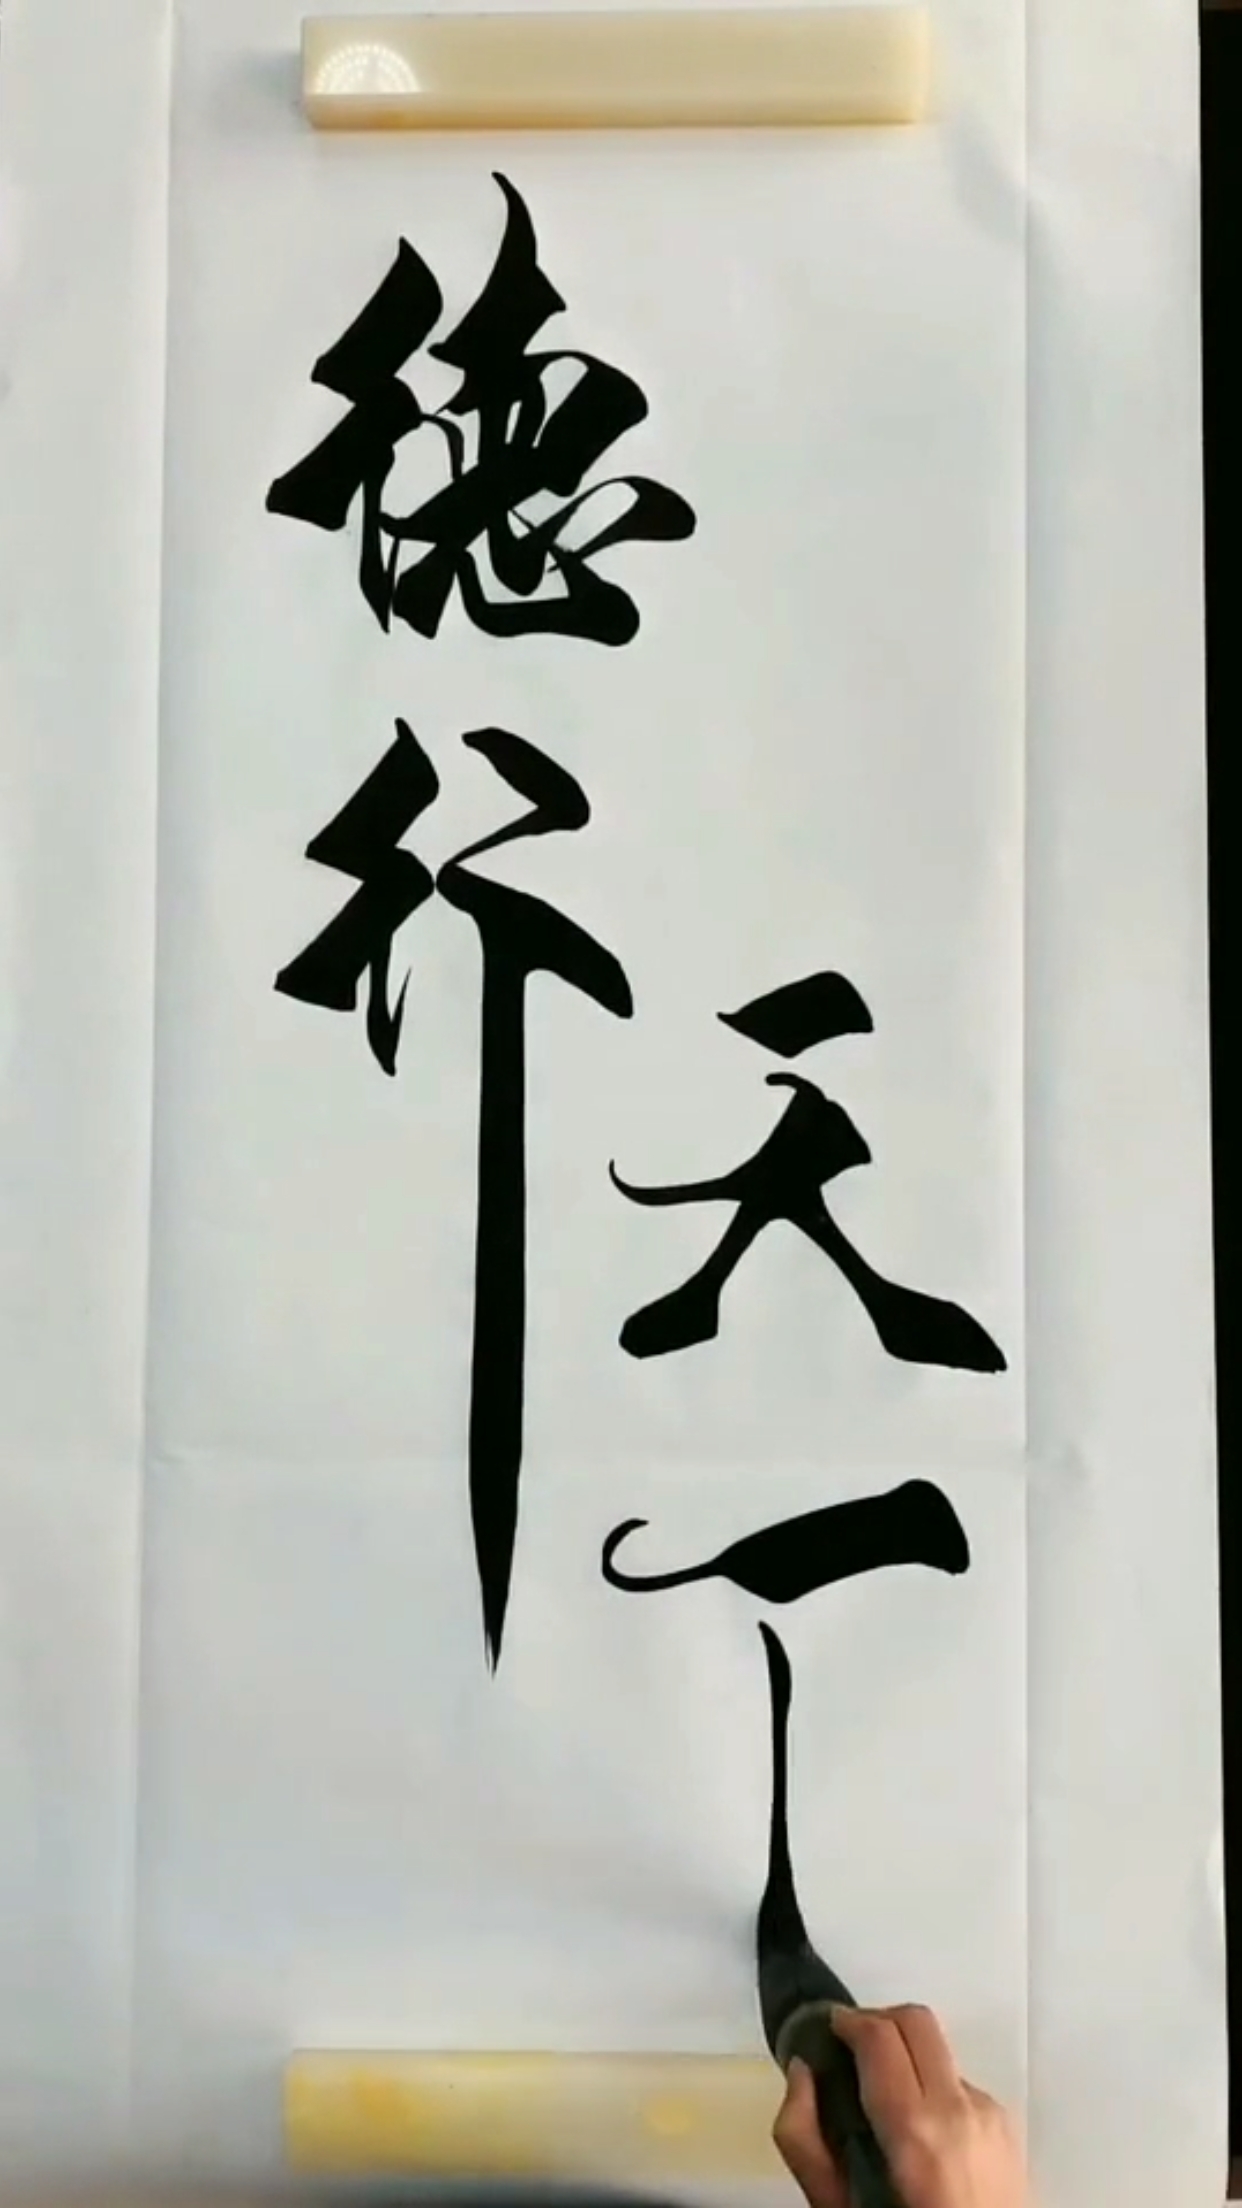 德行
天下